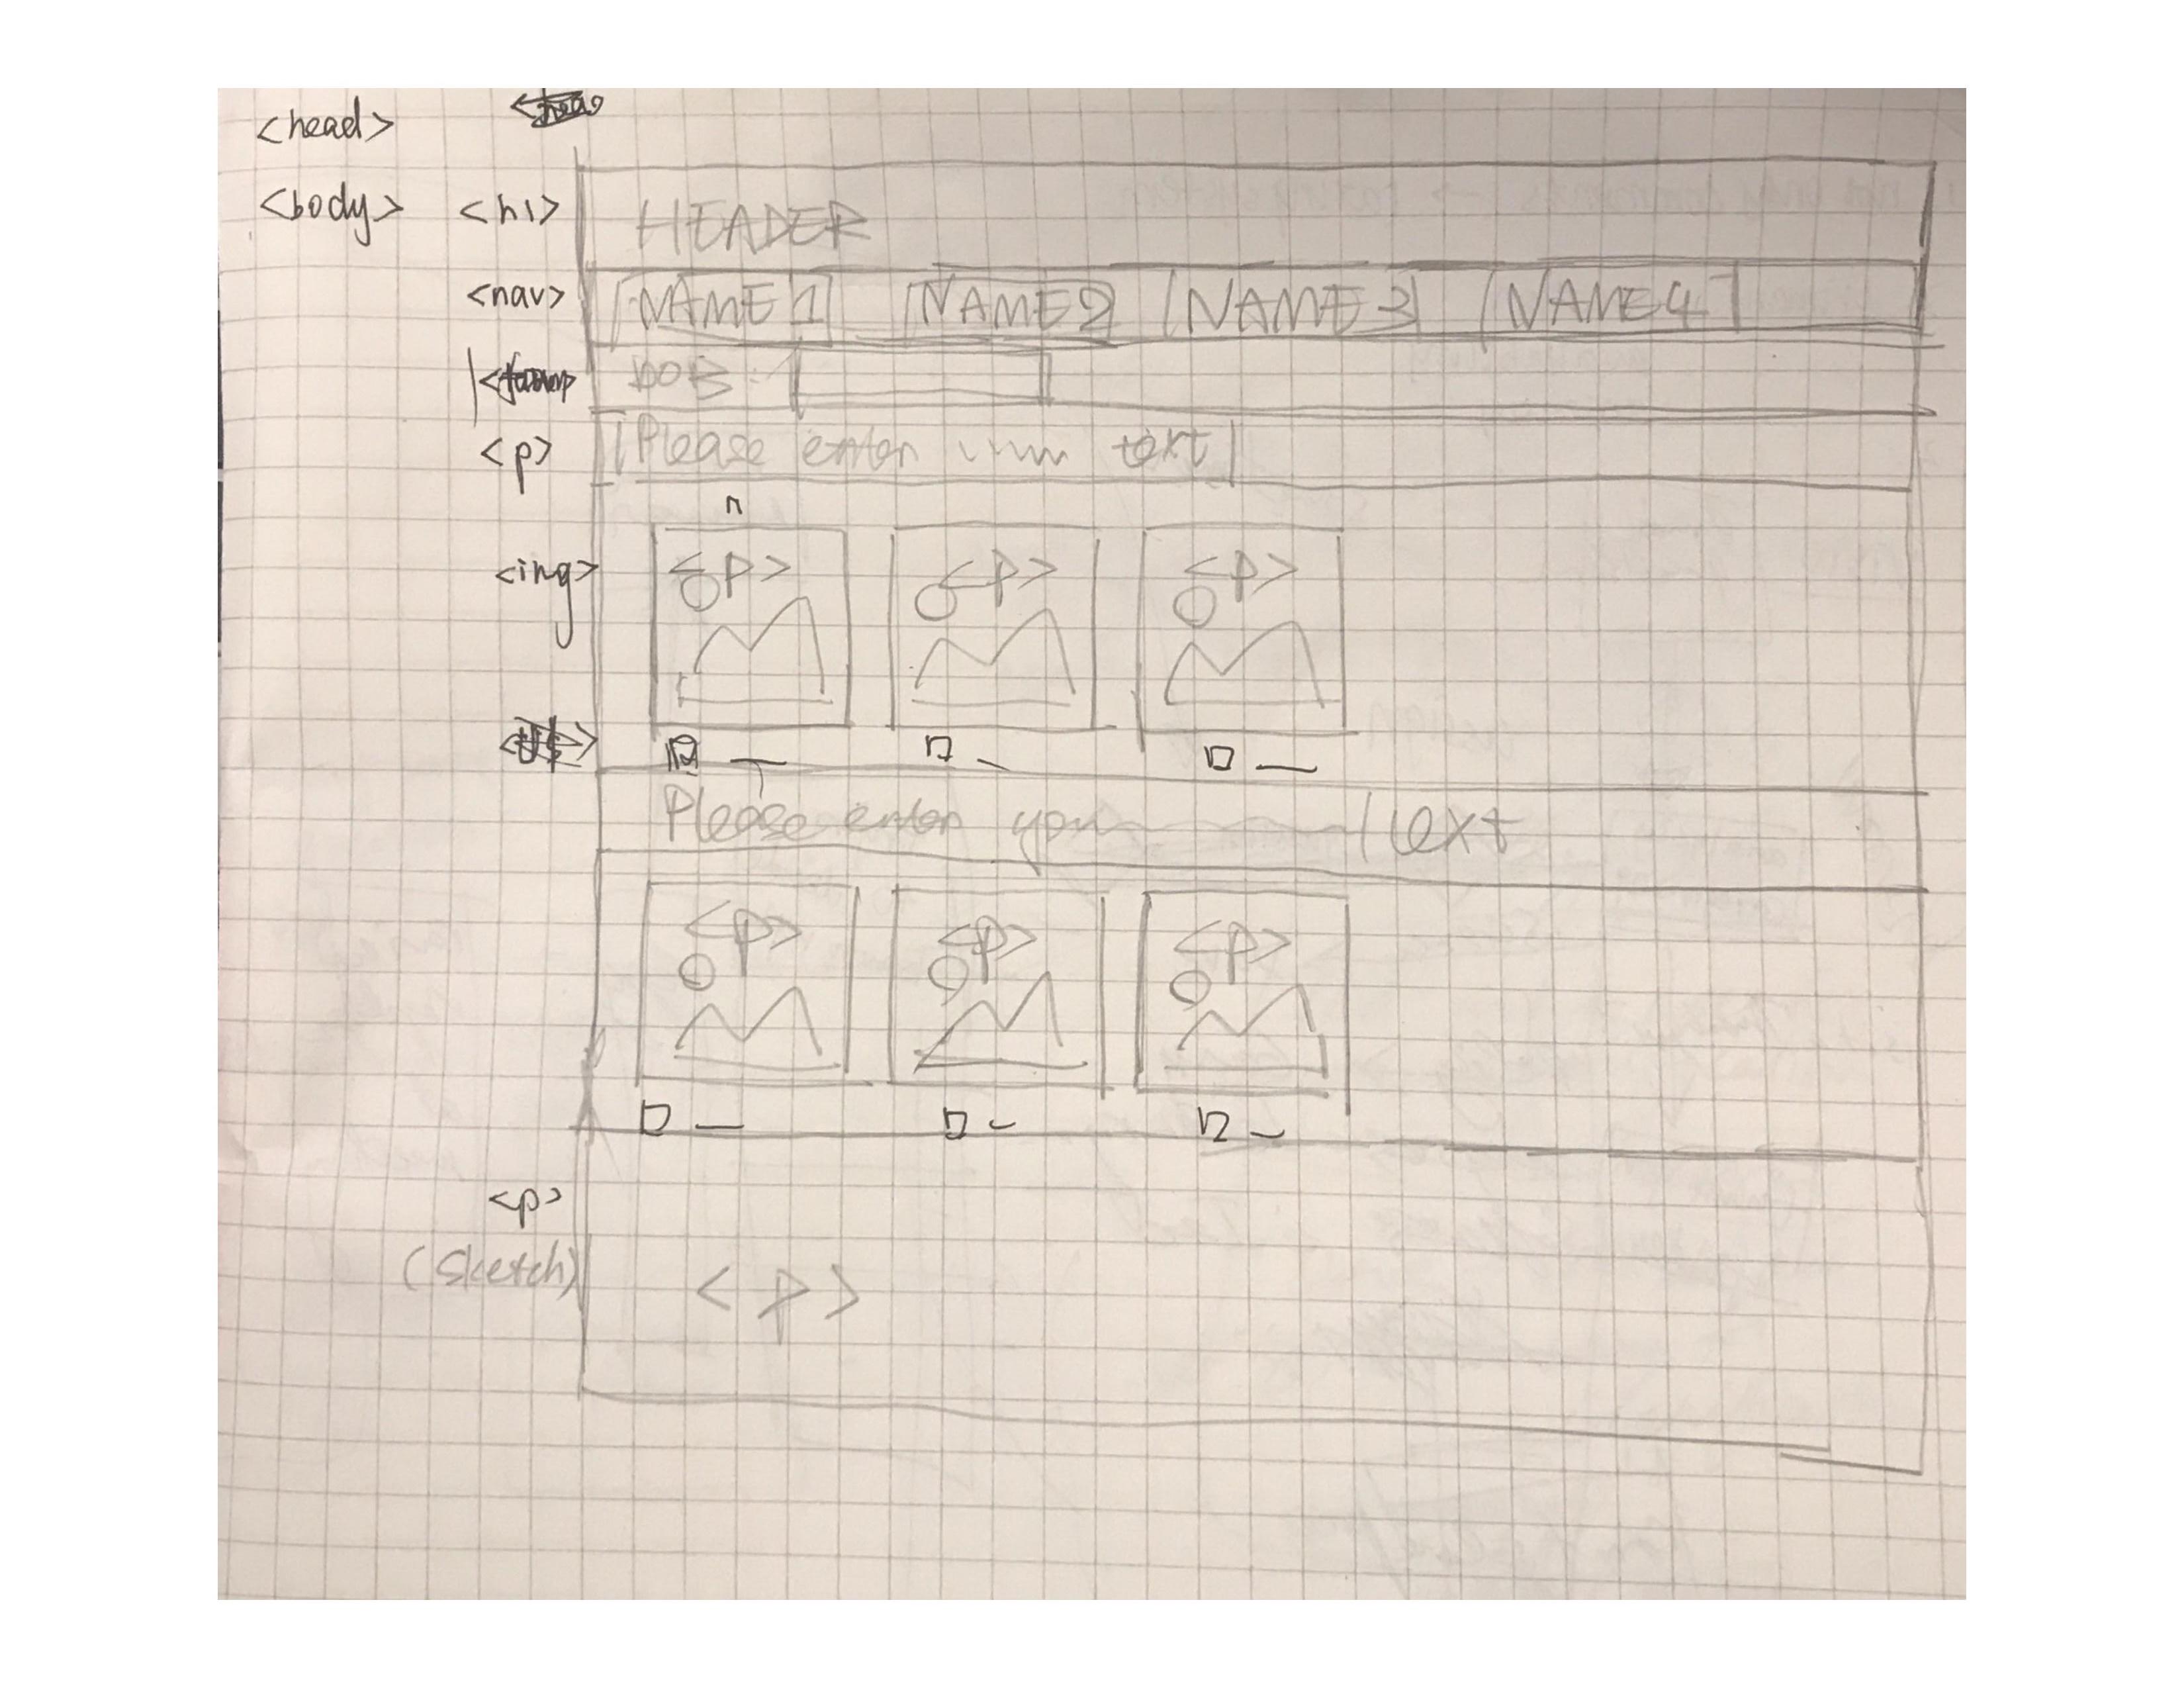 <head>
<body> <h1> HEADER
<nav> NAME1 NAME2 NAME3 NAME4
DOB:
<p> Please enter text
<img> <p> <p> <p>
Please enter your text
<p> <p> <p>
<p>
(Sketch)
<p>